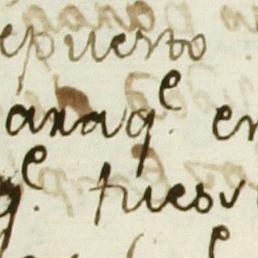 epuesto
araq.^e en
q.^e fues